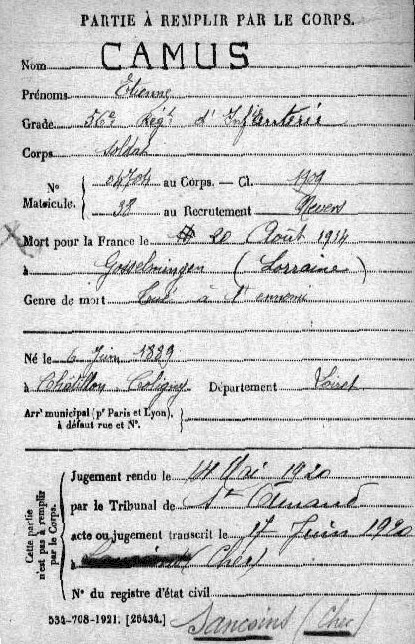 PARTIE À REMPLIR PAR LE CORPS.
Nom CAMUS
Prénoms Etienne
Grade 56e Régt d'Infanterie
Corps soldat
N° Matricule. { 04704 au Corps. — Cl. 1909
38 au Recrutement Nevers
Mort pour la France le 20 Août 1914
à Gosselmingen (Lorraine)
Genre de mort Tué à l'ennemi
Né le 6 Juin 1889
à Châtillon Coligny Département Loiret
Arrt municipal (pr Paris et Lyon),
à défaut rue et N°.
Cette partie n'est pas à remplir par le Corps.
Jugement rendu le 14 Mai 1920
par le Tribunal de St Amand
acte ou jugement transcrit le 17 Juin 1920
à (Cher)
N° du registre d'état civil
Sancoins (Cher)
534-708-1921. [26434.]